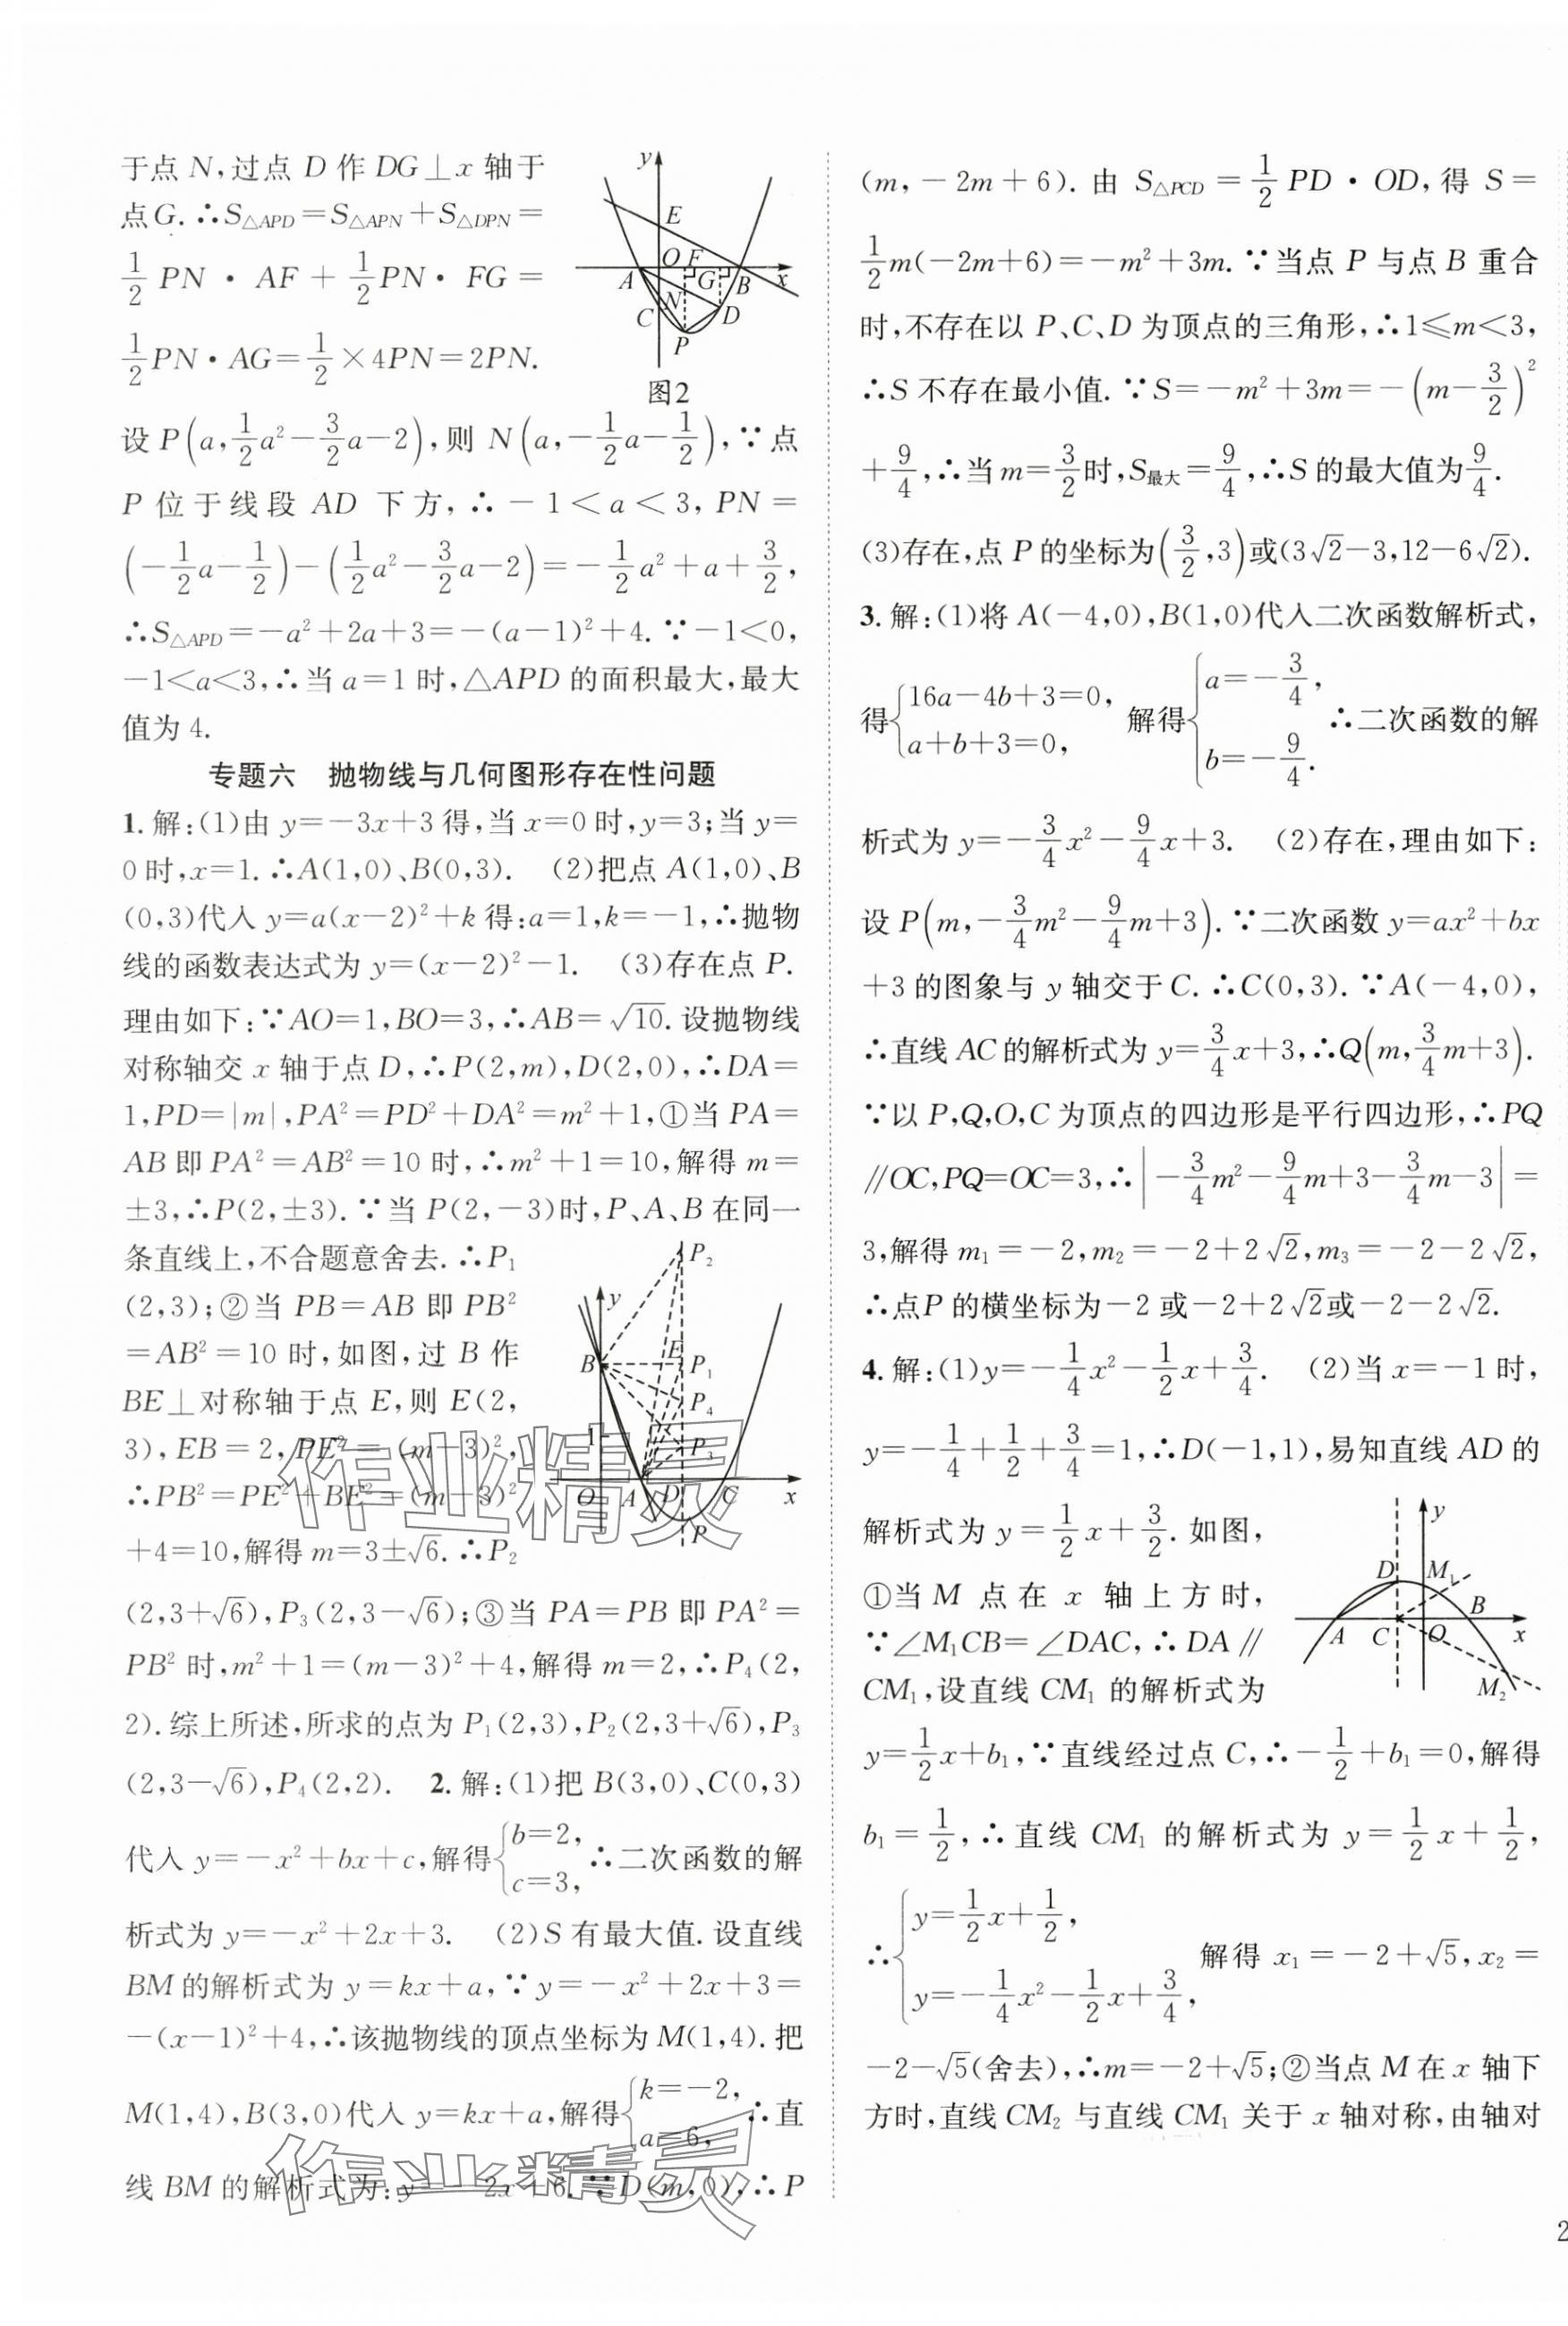 于点 N,过点 D 作 DG⊥x 轴于
点G.∴S△APD=S△APN+S△DPN=
1/2 PN·AF+1/2 PN·FG=
1/2 PN·AG=1/2×4PN=2PN.
y
E
O F
A G B x
N
C D
P
图2
设 P(a,1/2a²-3/2a-2),则 N(a,-1/2a-1/2),∵点
P 位于线段 AD 下方,∴-1<a<3,PN=
(-1/2a-1/2)-(1/2a²-3/2a-2)=-1/2a²+a+3/2,
∴S△APD=-a²+2a+3=-(a-1)²+4.∵-1<0,
-1<a<3,∴当 a=1 时,△APD 的面积最大,最大
值为 4.
专题六 抛物线与几何图形存在性问题
1.解:(1)由 y=-3x+3 得,当 x=0 时,y=3;当 y=
0 时,x=1.∴A(1,0)、B(0,3). (2)把点 A(1,0)、B
(0,3)代入 y=a(x-2)²+k 得:a=1,k=-1,∴抛物
线的函数表达式为 y=(x-2)²-1. (3)存在点 P.
理由如下:∵AO=1,BO=3,∴AB=√10.设抛物线
对称轴交 x 轴于点 D,∴P(2,m),D(2,0),∴DA=
1,PD=|m|,PA²=PD²+DA²=m²+1,①当 PA=
AB 即 PA²=AB²=10 时,∴m²+1=10,解得 m=
±3,∴P(2,±3).∵当 P(2,-3)时,P、A、B 在同一
条直线上,不合题意舍去.∴P₁
(2,3);②当 PB=AB 即 PB²
=AB²=10 时,如图,过 B 作
BE⊥对称轴于点 E,则 E(2,
3),EB=2,PE²=(m-3)²,
∴PB²=PE²+BE²=(m-3)²
+4=10,解得 m=3±√6.∴P₂
P₂
y
B E P₁
P₄
1
P₃
O A D C x
P
(2,3+√6),P₃(2,3-√6);③当 PA=PB 即 PA²=
PB² 时,m²+1=(m-3)²+4,解得 m=2,∴P₄(2,
2).综上所述,所求的点为 P₁(2,3),P₂(2,3+√6),P₃
(2,3-√6),P₄(2,2). 2.解:(1)把 B(3,0)、C(0,3)
代入 y=-x²+bx+c,解得{b=2, c=3, ∴二次函数的解
析式为 y=-x²+2x+3. (2)S 有最大值.设直线
BM 的解析式为 y=kx+a,∵y=-x²+2x+3=
-(x-1)²+4,∴该抛物线的顶点坐标为 M(1,4).把
M(1,4),B(3,0)代入 y=kx+a,解得{k=-2, a=6, ∴直
线 BM 的解析式为:y=-2x+6.∵D(m,0),∴P
(m,-2m+6).由 S△PCD=1/2 PD·OD,得 S=
1/2m(-2m+6)=-m²+3m.∵当点 P 与点 B 重合
时,不存在以 P、C、D 为顶点的三角形,∴1≤m<3,
∴S 不存在最小值.∵S=-m²+3m=-(m-3/2)²
+9/4,∴当 m=3/2时,S最大=9/4,∴S 的最大值为9/4.
(3)存在,点 P 的坐标为(3/2,3)或(3√2-3,12-6√2).
3.解:(1)将 A(-4,0),B(1,0)代入二次函数解析式,
得{16a-4b+3=0, a+b+3=0, 解得{a=-3/4, b=-9/4. ∴二次函数的解
析式为 y=-3/4x²-9/4x+3. (2)存在,理由如下:
设 P(m,-3/4m²-9/4m+3).∵二次函数 y=ax²+bx
+3 的图象与 y 轴交于 C.∴C(0,3).∵A(-4,0),
∴直线 AC 的解析式为 y=3/4x+3,∴Q(m,3/4m+3).
∵以 P,Q,O,C 为顶点的四边形是平行四边形,∴PQ
∥OC,PQ=OC=3,∴|-3/4m²-9/4m+3-3/4m-3|=
3,解得 m₁=-2,m₂=-2+2√2,m₃=-2-2√2,
∴点P 的横坐标为-2 或-2+2√2或-2-2√2.
4.解:(1)y=-1/4x²-1/2x+3/4. (2)当 x=-1 时,
y=-1/4+1/2+3/4=1,∴D(-1,1),易知直线 AD 的
解析式为 y=1/2x+3/2.如图,
①当 M 点在 x 轴上方时,
∵∠M₁CB=∠DAC,∴DA∥
CM₁,设直线 CM₁ 的解析式为
y
D M₁
B
A C O x
M₂
y=1/2x+b₁,∵直线经过点 C,∴-1/2+b₁=0,解得
b₁=1/2,∴直线 CM₁ 的解析式为 y=1/2x+1/2,
∴{y=1/2x+1/2, y=-1/4x²-1/2x+3/4, 解得 x₁=-2+√5,x₂=
-2-√5(舍去),∴m=-2+√5;②当点 M 在 x 轴下
方时,直线 CM₂ 与直线 CM₁ 关于 x 轴对称,由轴对
作业精灵
作业精灵
2